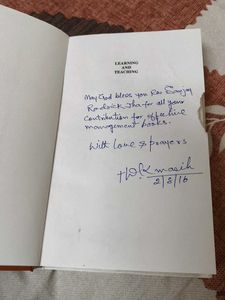 LEARNING
AND
TEACHING
May God bless you Rev Sanjay
Rodrick Jha for all your
Contribution for effective
management books.
With Love & prayers
Masih
2/8/16